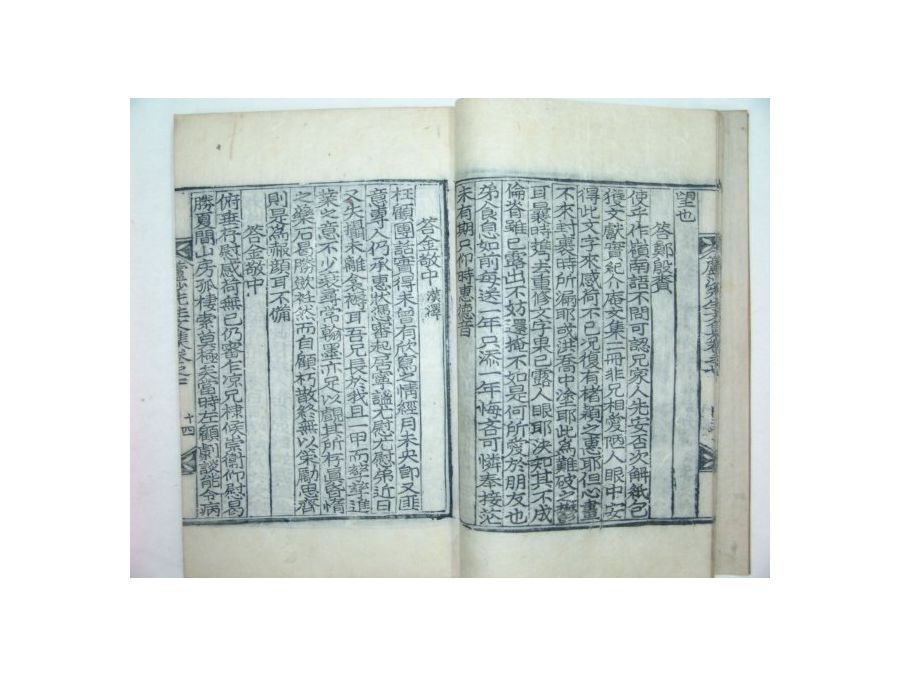 望也
答鄭殷賚
使乎作嶺南語不問可認兄家人先安否次解紙包
獲文獻寶紀介庵文集二冊非兄相愛俩人眼中安
得此文字來感荷不已况復有楮穎之惠耶但心畫
不來封裹時所漏耶或洪喬中塗耶此爲難破之
耳曩時携去重修文字東已露人眼耶決知其不成
倫脊雖已露出不妨還掩不如是何所愛於朋友也
弟食息如前每送一年只添一年悔吝可憐奉接茫
未有期只仰時惠德音
答金敬中 漢澤
枉顧團話實得未曾有依寫之情經月未央卽又匪
意專人仍承惠狀憑審起居寧謐尤慰尤慰弟近日
又失攝未離衾褥耳吾兄長於我且一甲而經學進
業之意不少衰尋常翰墨亦足以覰其所存眞昏惰
之藥石曷勝斂衽然而自顧朽散終無以策勵思齊
則是爲赧顔耳不備
答金敬中
俯垂存慰感荷無已仍審乍凉兄棣候崇衛仰慰曷
勝夏間山房孤棲索莫極矣當時左顧劇談能令病
先生文集卷之三
十四